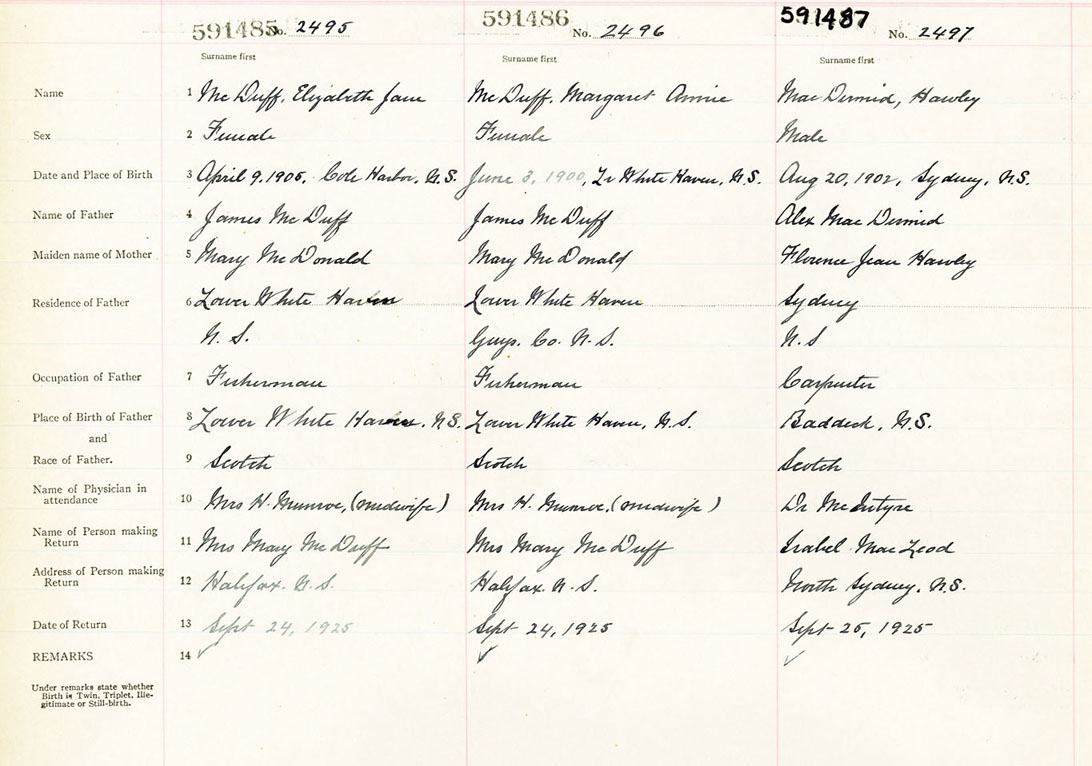 591485 No. 2495 591486 No. 2496 591487 No. 2497
Surname first Surname first Surname first
Name 1 Mc Duff, Elizabeth Jane Mc Duff, Margaret Annie Mac Dermid, Hawley
Sex 2 Female Female Male
Date and Place of Birth 3 April 9, 1905, Cole Harbor, N.S. June 3, 1900, Lr White Haven, N.S. Aug 20, 1902, Sydney, N.S.
Name of Father 4 James Mc Duff James Mc Duff Alex Mac Dermid
Maiden name of Mother 5 Mary Mc Donald Mary Mc Donald Florence Jean Hawley
Residence of Father 6 Lower White Haven Lower White Haven Sydney
N. S. Guys. Co. N. S. N. S
Occupation of Father 7 Fisherman Fisherman Carpenter
Place of Birth of Father 8 Lower White Haven, N.S. Lower White Haven, N.S. Baddeck, N.S.
and
Race of Father. 9 Scotch Scotch Scotch
Name of Physician in
attendance 10 Mrs H. Munroe, (midwife) Mrs H. Munroe, (midwife) Dr McIntyre
Name of Person making
Return 11 Mrs Mary Mc Duff Mrs Mary Mc Duff Isabel Mac Leod
Address of Person making
Return 12 Halifax. N. S. Halifax. N. S. North Sydney, N.S.
Date of Return 13 Sept 24, 1925 Sept 24, 1925 Sept 25, 1925
REMARKS 14 ✓ ✓ ✓
Under remarks state whether
Birth is Twin, Triplet, Ille-
gitimate or Still-birth.